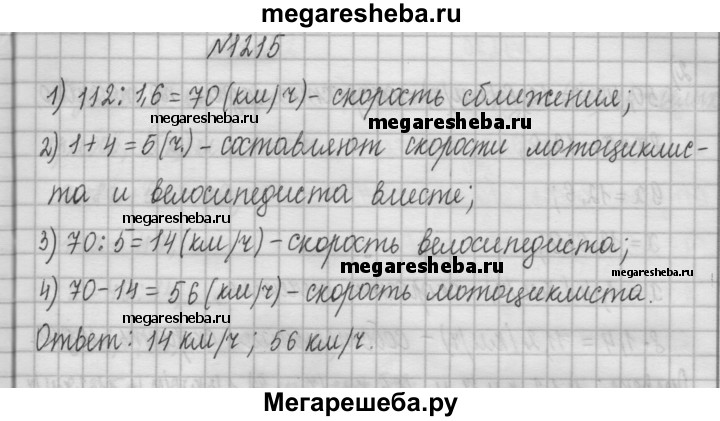 megaresheba.ru
№1215
1) 112:1,6=70(км/ч)-скорость сближения;
megaresheba.ru megaresheba.ru
2) 1+4=5(ч.)-составляют скорости мотоциклис-
та и велосипедиста вместе;
megaresheba.ru
3) 70:5=14(км/ч)-скорость велосипедиста;
megaresheba.ru megaresheba.ru
4) 70-14=56(км/ч)-скорость мотоциклиста.
megaresheba.ru
Ответ: 14 км/ч; 56 км/ч.
megaresheba.ru
Мегарешеба.ру